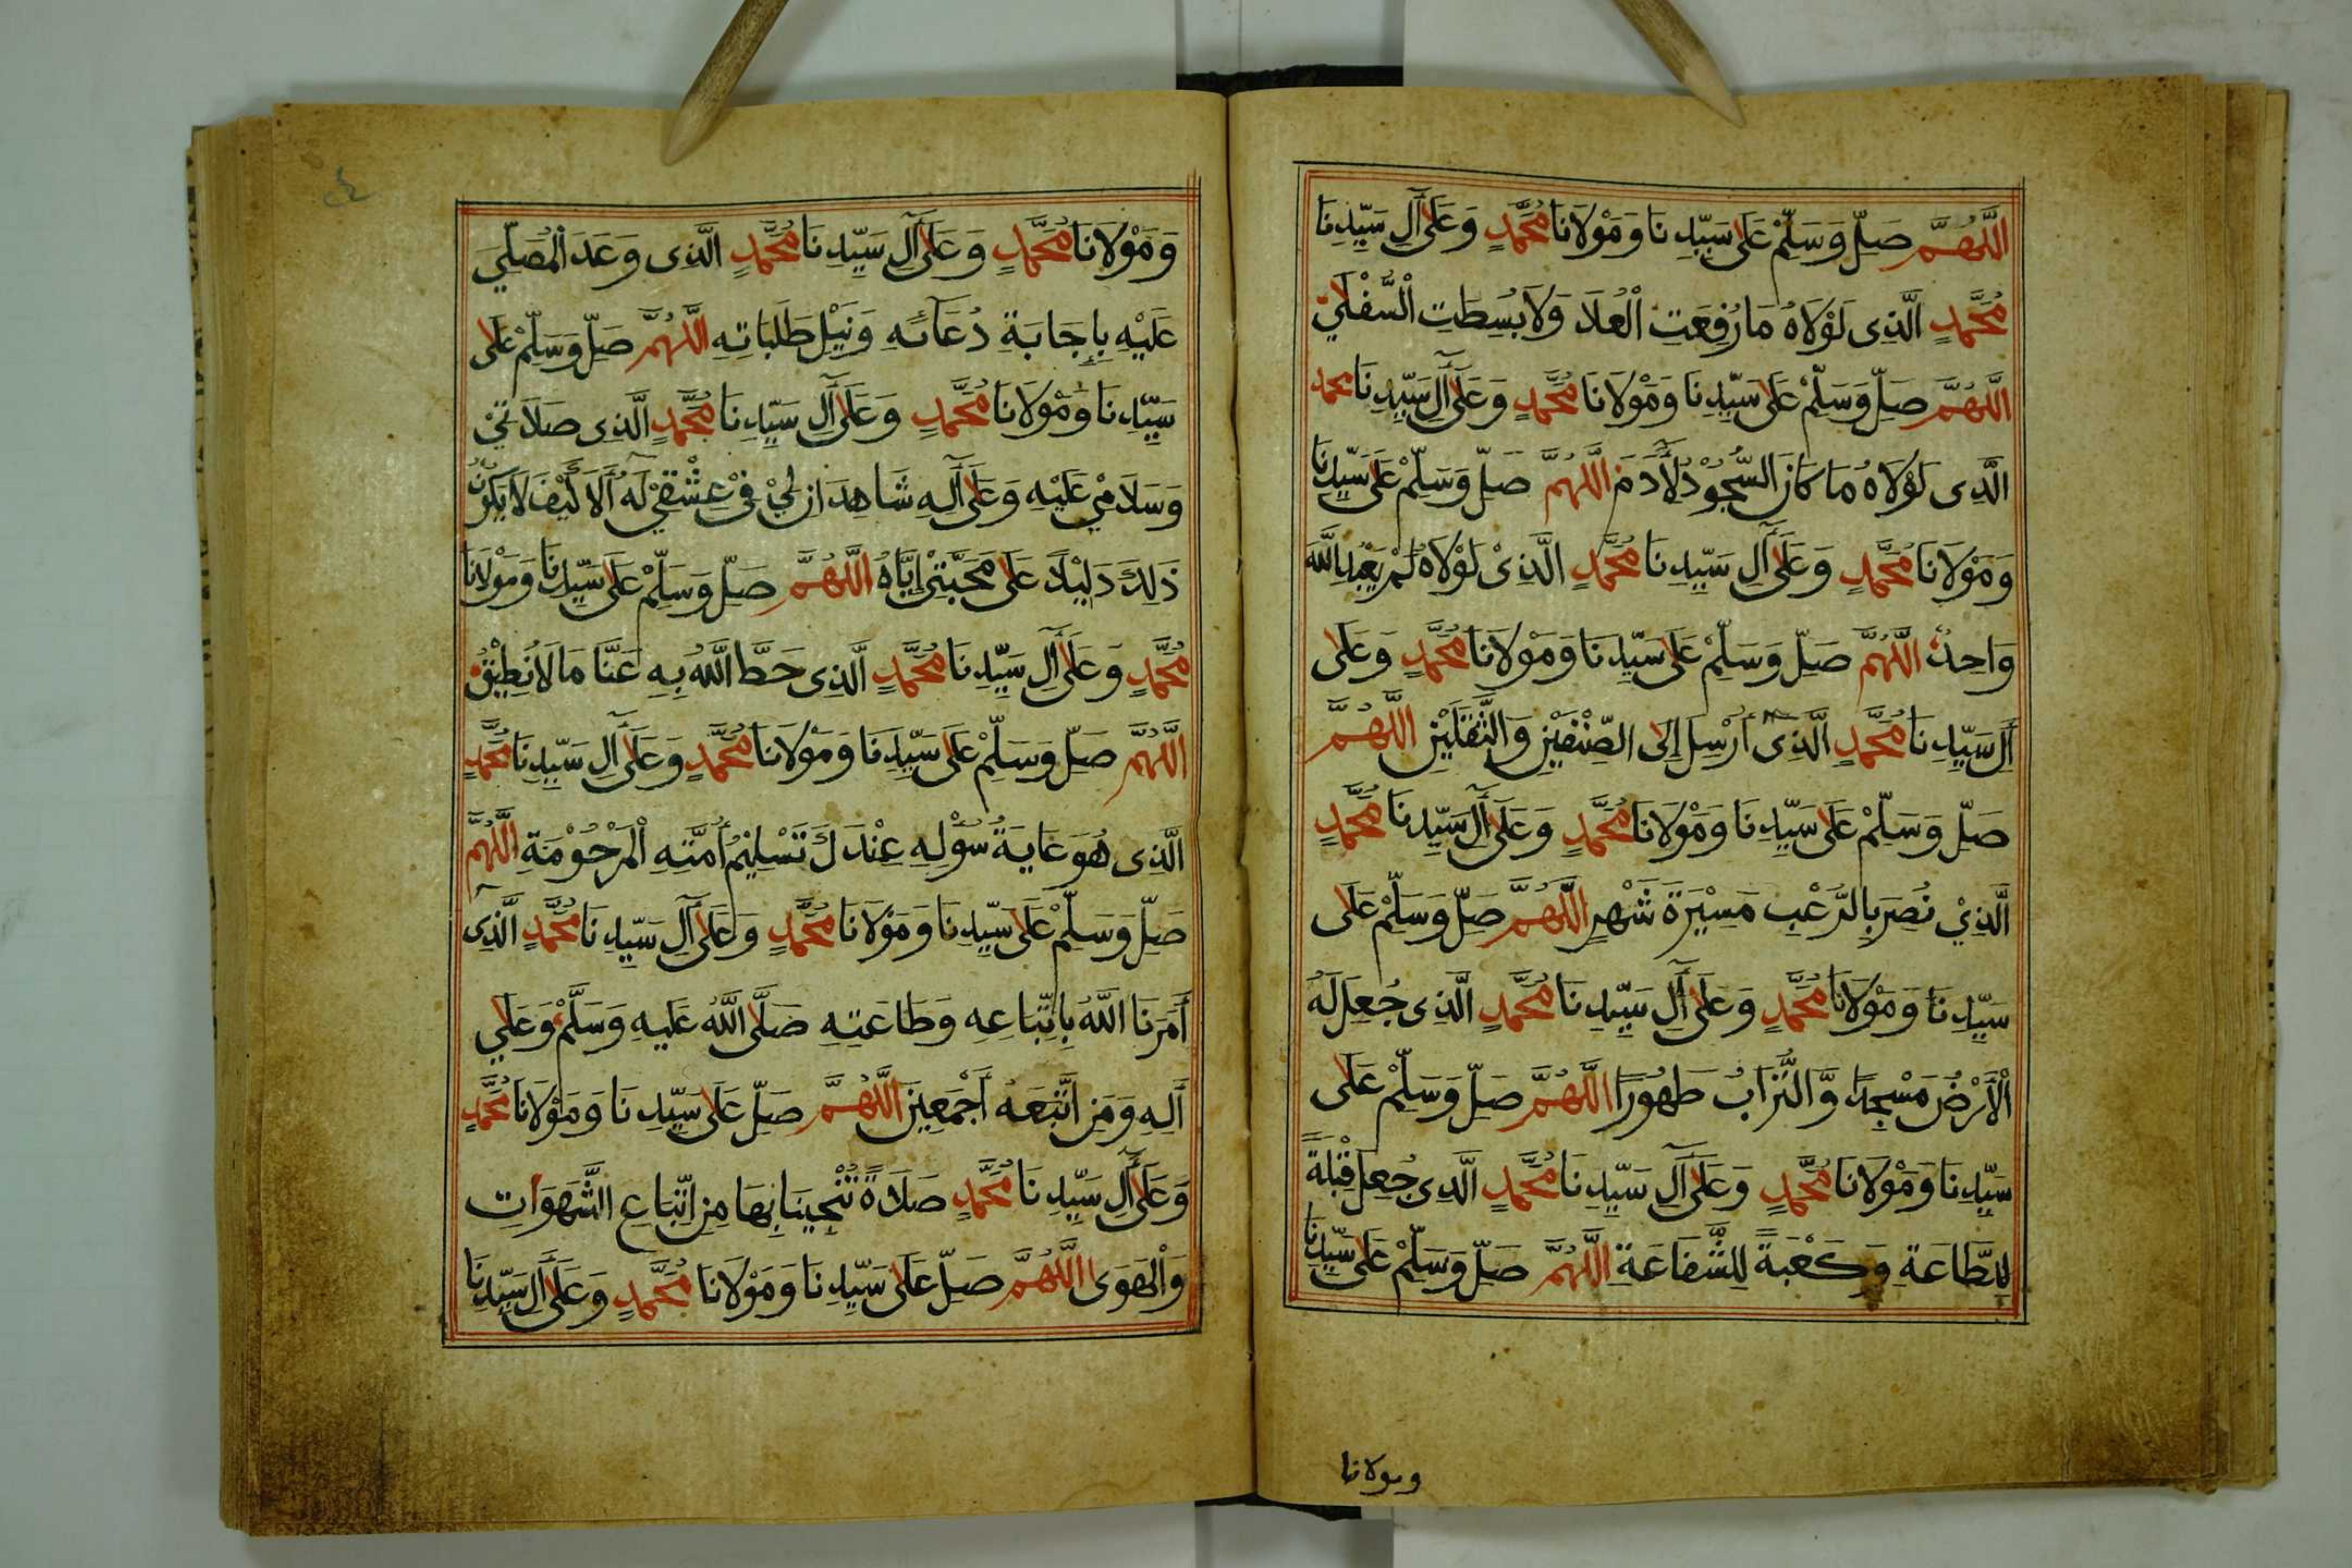 اَللّٰهُمَّ صَلِّ وَسَلِّمْ عَلَى سَيِّدِنَا وَمَوْلَانَا مُحَمَّدٍ وَعَلَى آلِ سَيِّدِنَا
مُحَمَّدٍ الَّذِى لَوْلَاهُ مَا رُفِعَتِ الْعُلَا وَلَا بُسِطَتِ السُّفْلَى
اَللّٰهُمَّ صَلِّ وَسَلِّمْ عَلَى سَيِّدِنَا وَمَوْلَانَا مُحَمَّدٍ وَعَلَى آلِ سَيِّدِنَا محمد
الَّذِى لَوْلَاهُ مَا كَانَ السُّجُوْدُ لِآدَمَ اللّٰهُمَّ صَلِّ وَسَلِّمْ عَلَى سَيِّدِنَا
وَمَوْلَانَا مُحَمَّدٍ وَعَلَى آلِ سَيِّدِنَا مُحَمَّدٍ الَّذِىْ لَوْلَاهُ لَمْ يَعْبُدِ اللّٰهَ
وَاحِدٌ اللّٰهُمَّ صَلِّ وَسَلِّمْ عَلَى سَيِّدِنَا وَمَوْلَانَا مُحَمَّدٍ وَعَلَى
آلِ سَيِّدِنَا مُحَمَّدٍ الَّذِىْ أُرْسِلَ إِلَى الصِّنْفَيْنِ وَالثَّقَلَيْنِ اللّٰهُمَّ
صَلِّ وَسَلِّمْ عَلَى سَيِّدِنَا وَمَوْلَانَا مُحَمَّدٍ وَعَلَى آلِ سَيِّدِنَا مُحَمَّدٍ
الَّذِيْ نُصِرَ بِالرُّعْبِ مَسِيْرَةَ شَهْرٍ اللّٰهُمَّ صَلِّ وَسَلِّمْ عَلَى
سَيِّدِنَا وَمَوْلَانَا مُحَمَّدٍ وَعَلَى آلِ سَيِّدِنَا مُحَمَّدٍ الَّذِى جُعِلَ لَهُ
الْأَرْضُ مَسْجِدًا وَّالتُّرَابُ طَهُوْرًا اللّٰهُمَّ صَلِّ وَسَلِّمْ عَلَى
سَيِّدِنَا وَمَوْلَانَا مُحَمَّدٍ وَعَلَى آلِ سَيِّدِنَا مُحَمَّدٍ الَّذِى جُعِلَ قِبْلَةً
لِلطَّاعَةِ وَكَعْبَةً لِلشَّفَاعَةِ اللّٰهُمَّ صَلِّ وَسَلِّمْ عَلَى سَيِّدِنَا
ومولانا
٢٤
وَمَوْلَانَا مُحَمَّدٍ وَعَلَى آلِ سَيِّدِنَا مُحَمَّدٍ الَّذِى وَعَدَ الْمُصَلِّيَ
عَلَيْهِ بِإِجَابَةِ دُعَائِهِ وَنَيْلِ طَلَبَاتِهِ اللّٰهُمَّ صَلِّ وَسَلِّمْ عَلَى
سَيِّدِنَا وَمَوْلَانَا مُحَمَّدٍ وَعَلَى آلِ سَيِّدِنَا مُحَمَّدٍ الَّذِى صَلَاتِيْ
وَسَلَامِيْ عَلَيْهِ وَعَلَى آلِهِ شَاهِدَانِ لِيْ فِيْ عِشْقِيْ لَهُ أَلَا كَيْفَ لَا يَكُوْنُ
ذٰلِكَ دَلِيْلًا عَلَى مَحَبَّتِىْ إِيَّاهُ اللّٰهُمَّ صَلِّ وَسَلِّمْ عَلَى سَيِّدِنَا وَمَوْلَانَا
مُحَمَّدٍ وَعَلَى آلِ سَيِّدِنَا مُحَمَّدٍ الَّذِى حَطَّ اللّٰهُ بِهِ عَنَّا مَا لَا نُطِيْقُ
اللّٰهُمَّ صَلِّ وَسَلِّمْ عَلَى سَيِّدِنَا وَمَوْلَانَا مُحَمَّدٍ وَعَلَى آلِ سَيِّدِنَا مُحَمَّدٍ
الَّذِى هُوَ غَايَةُ سُؤْلِهِ عِنْدَكَ تَسْلِيْمُ أُمَّتِهِ الْمَرْحُوْمَةِ اللّٰهُمَّ
صَلِّ وَسَلِّمْ عَلَى سَيِّدِنَا وَمَوْلَانَا مُحَمَّدٍ وَعَلَى آلِ سَيِّدِنَا مُحَمَّدٍ الَّذِى
أَمَرَنَا اللّٰهُ بِاتِّبَاعِهِ وَطَاعَتِهِ صَلَّى اللّٰهُ عَلَيهِ وَسَلَّمَ وَعَلَى
آلِهِ وَمَنِ اتَّبَعَهُ أَجْمَعِيْنَ اللّٰهُمَّ صَلِّ عَلَى سَيِّدِنَا وَمَوْلَانَا مُحَمَّدٍ
وَعَلَى آلِ سَيِّدِنَا مُحَمَّدٍ صَلَاةً تُنْجِيْنَا بِهَا مِنِ اتِّبَاعِ الشَّهَوَاتِ
وَالْهَوَى اللّٰهُمَّ صَلِّ عَلَى سَيِّدِنَا وَمَوْلَانَا مُحَمَّدٍ وَعَلَى آلِ سَيِّدِنَا